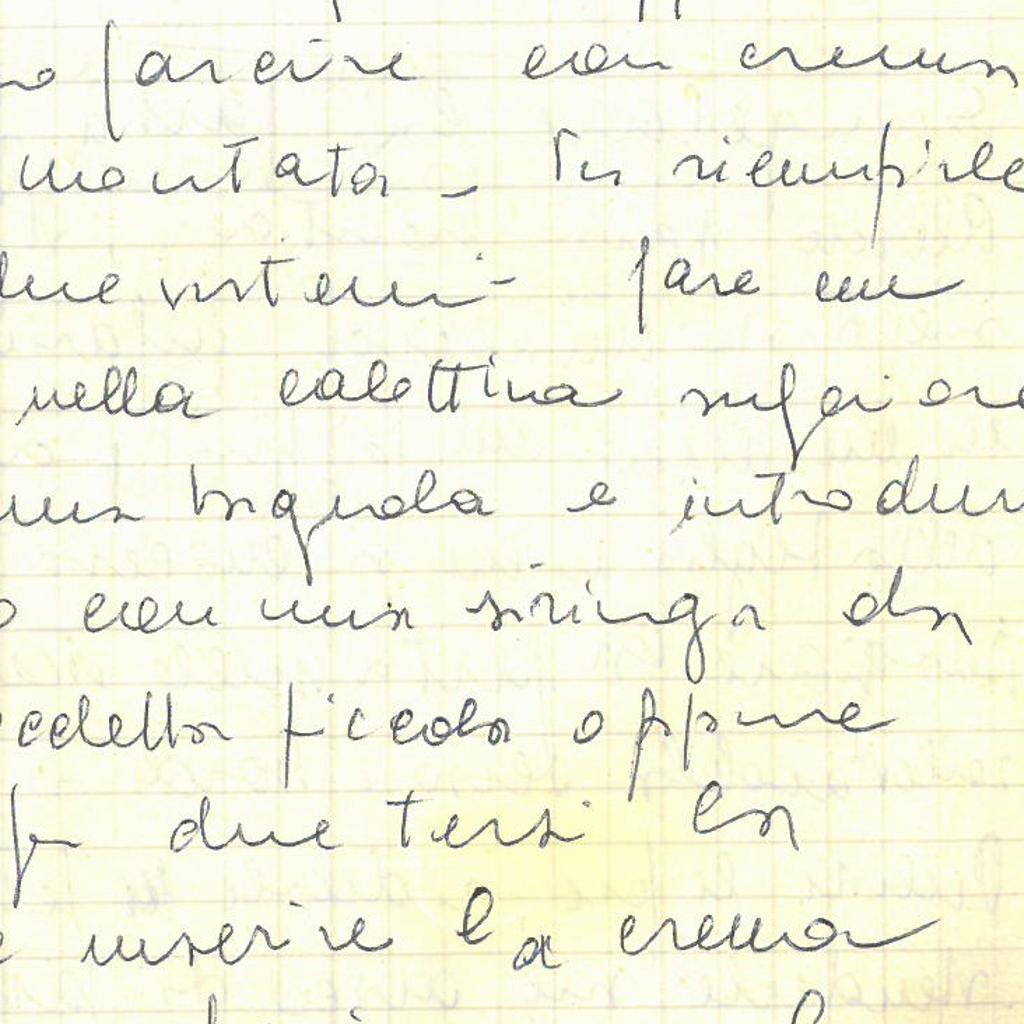 farcire con crema
montata - Per riempirle
due sistemi - fare un
nella calottina superiore
una bignola e introdur
con una siringa da
piccola oppure
per due terzi la
e inserire la crema